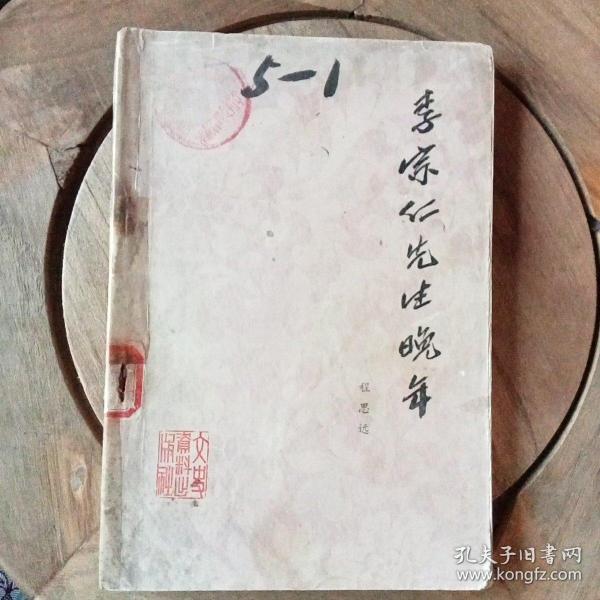 5-1
李宗仁先生晚年
程思远
文史
资料出
版社
孔夫子旧书网
www.kongfz.com